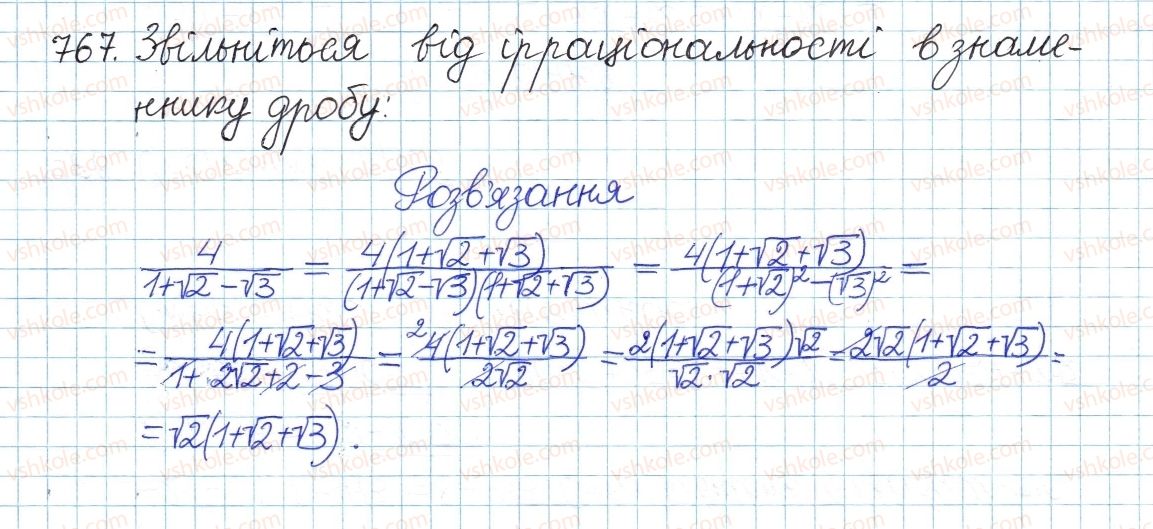 767. Звільніться від ірраціональності в знаме-
ннику дробу:
Розв'язання
4/(1+√2-√3) = 4(1+√2+√3)/((1+√2-√3)(1+√2+√3)) = 4(1+√2+√3)/((1+√2)²-(√3)²) =
= 4(1+√2+√3)/(1+2√2+2-3) = ²4(1+√2+√3)/(2√2) = 2(1+√2+√3)√2/(√2·√2) = 2√2(1+√2+√3)/2 =
= √2(1+√2+√3).